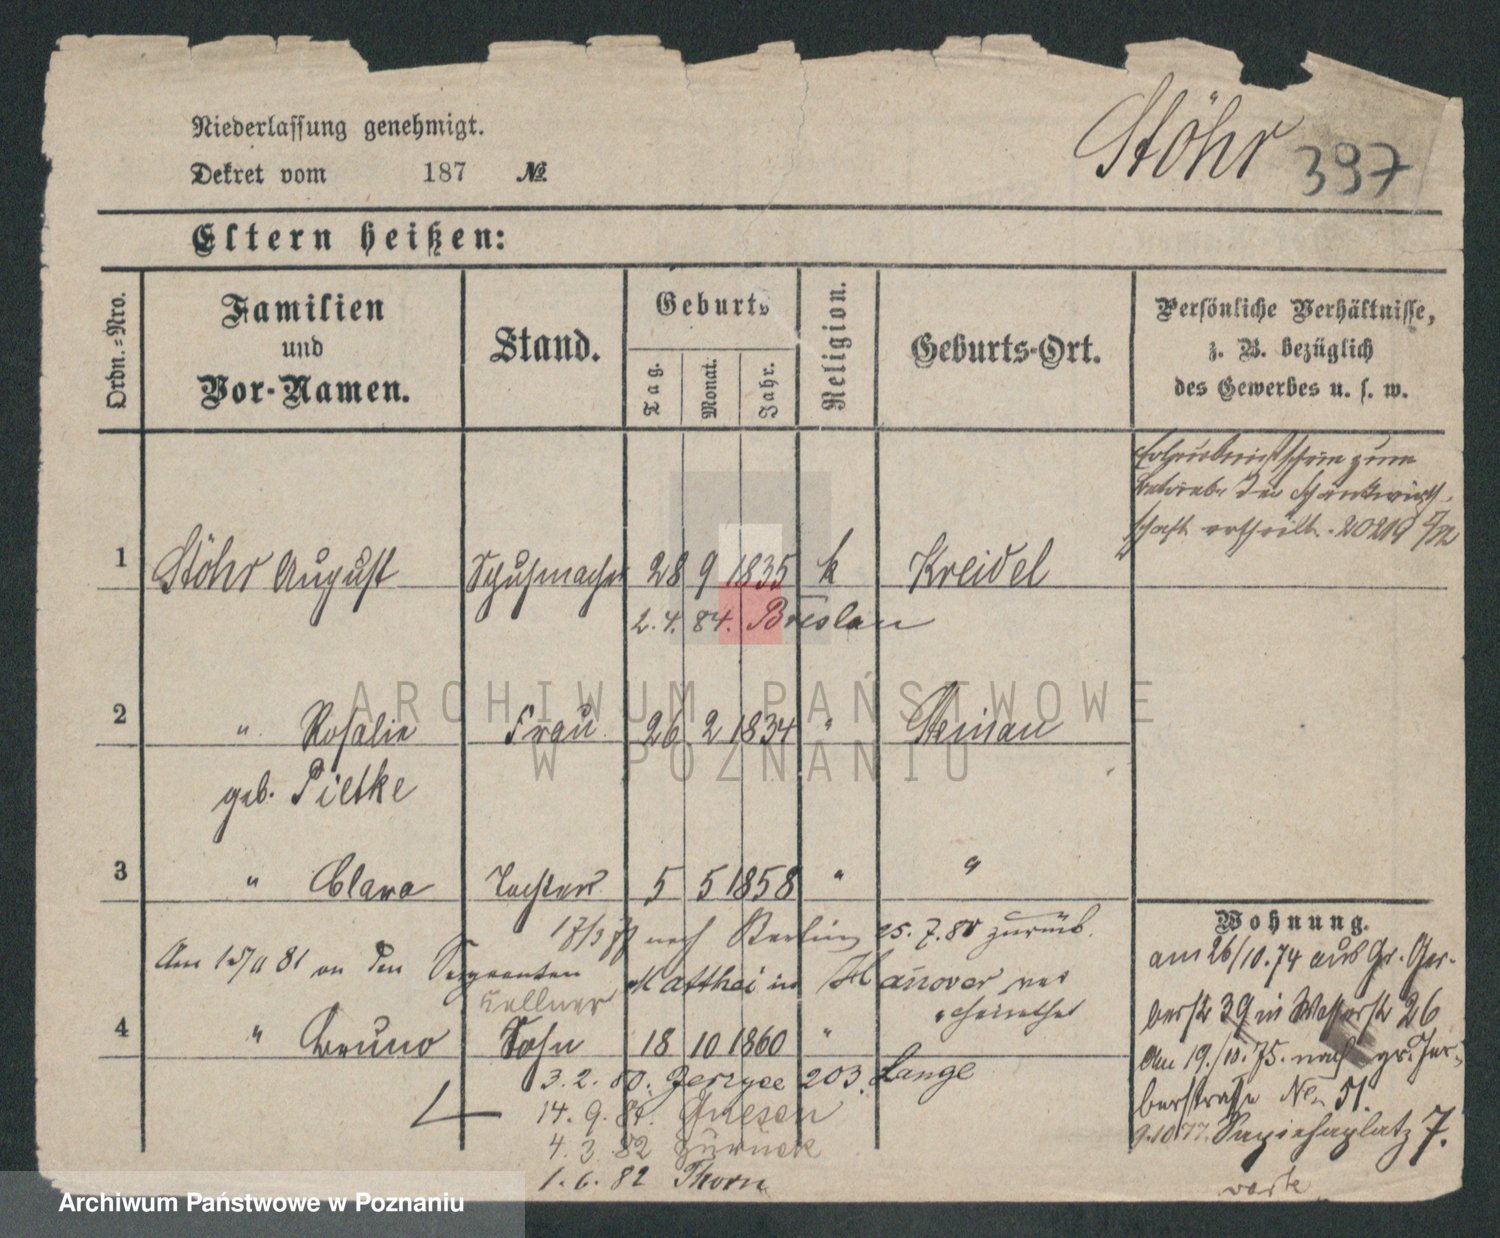 Niederlassung genehmigt.
Dekret vom 187 №
Stöhr 397
Eltern heißen:
Ordn.-Nro.
Familien
und
Vor-Namen.
Stand.
Geburts
Tag.
Monat.
Jahr.
Religion.
Geburts-Ort.
Persönliche Verhältnisse,
z. B. bezüglich
des Gewerbes u. s. w.
Erlaubnißschein zum
Betriebe der Schankwirth-
schaft ertheilt.
1 Stöhr August Schuhmacher 28 9 1835 k Kreidel
2. 4. 84. Breslau
2 " Rosalie Frau 26 2 1834 " Steinau
geb. Pietke
3 " Clara Tochter 5 5 1858 " "
nach Berlin 25. 7. 80 zurück.
Am 81 an den Sergeanten Matthei in Hanover ver
heirathet
Kellner
4 " Bruno Sohn 18 10 1860 "
3. 2. 80. Jerzyce 203. Lange
14. 9. 81. Gnesen
4. 3. 82 zurück
1. 6. 82 Thorn
Wohnung.
am 26/10. 74 aus Gr. Ger-
berstr 39 in Wasserstr 26
Am 19./10. 75. nach gr. Ger-
berstraße No 51.
9.10.77. Sapiehaplatz 7.
ARCHIWUM PAŃSTWOWE
W POZNANIU
Archiwum Państwowe w Poznaniu